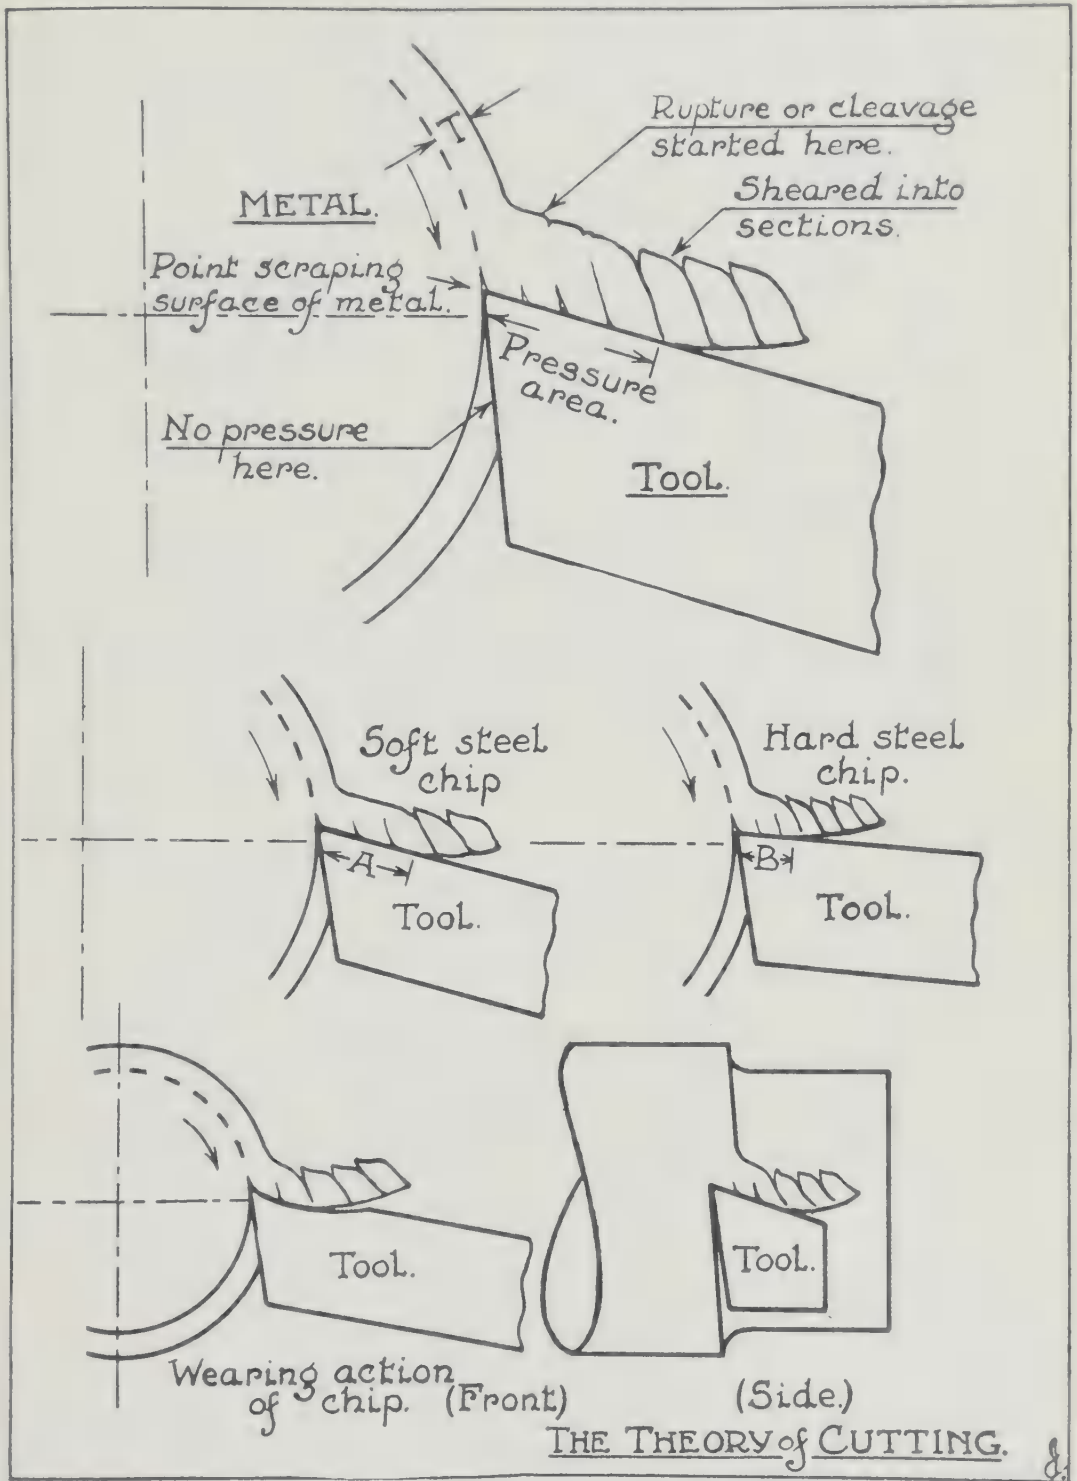 T
Rupture or cleavage
started here.
Sheared into
sections.
METAL.
Point scraping
surface of metal.
Pressure
area.
No pressure
here.
TOOL.
Soft steel
chip
Hard steel
chip.
A
B
TOOL.
TOOL.
TOOL.
TOOL.
Wearing action
of chip. (Front)
(Side.)
THE THEORY of CUTTING.